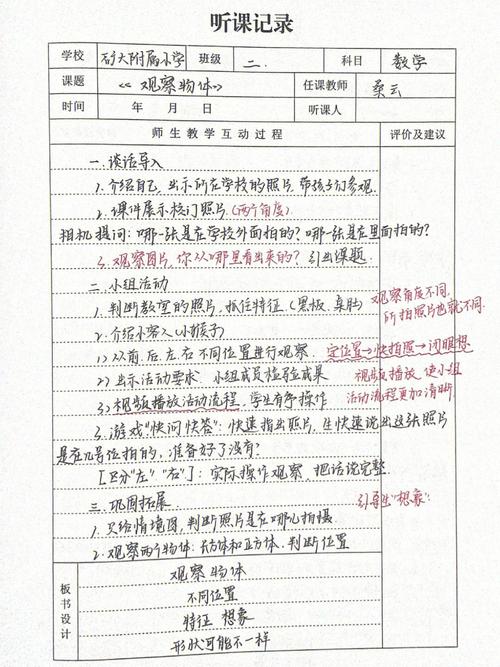 听课记录
学校 矿大附属小学 班级 二. 科目 数学
课题 《观察物体》 任课教师 桑云
时间 年 月 日 听课人
师生教学互动过程 评价及建议
一.谈话导入
1.介绍自己,出示所在学校的照片,带孩子们参观.
2.课件展示校门照片.(两个角度)
相机提问:哪一张是在学校外面拍的?哪一张是在里面拍的?
3.观察图片,你从哪里看出来的? 引出课题.
二.小组活动
1.判断教室的照片,抓住特征(黑板、桌肚)
观察角度不同,
所拍照片也就不同.
2.介绍小客人(小猴子)
1)从前.后.左.右不同位置进行观察. 定位置→快拍照→闭眼想
2)出示活动要求.小组成员检验成果
视频播放,使小组
活动流程更加清晰.
3)视频播放活动流程,学生有序操作
3.游戏"快问快答":快速指出照片,生快速说出这张照片
是在几号位拍的,准备好了没有?
[区分"左""右"]:实际操作观察,把话说完整
三.巩固拓展
引导生"想象"
1.只给情境图,判断照片是在哪儿拍摄
2.观察两个物体:长方体和正方体.判断位置
板书设计
观察物体
不同位置
特征 想象
形状可能不一样